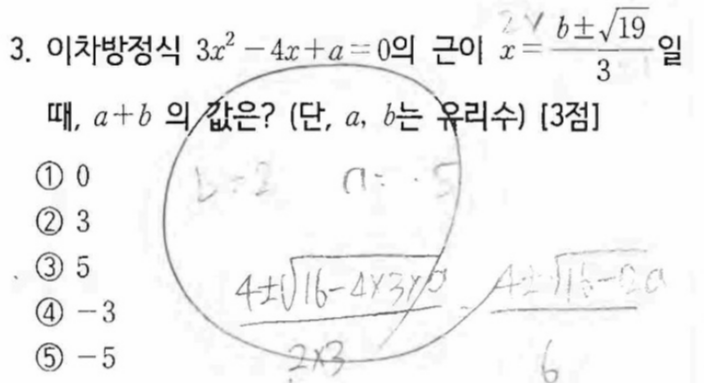 3. 이차방정식 3x² − 4x + a = 0의 근이 x = (b ± √19)/3 일
때, a+b 의 값은? (단, a, b는 유리수) [3점]
① 0
② 3
③ 5
④ −3
⑤ −5
b = 2 a = -5
4±√16-4×3×a
2×3
4±√16-12a
6